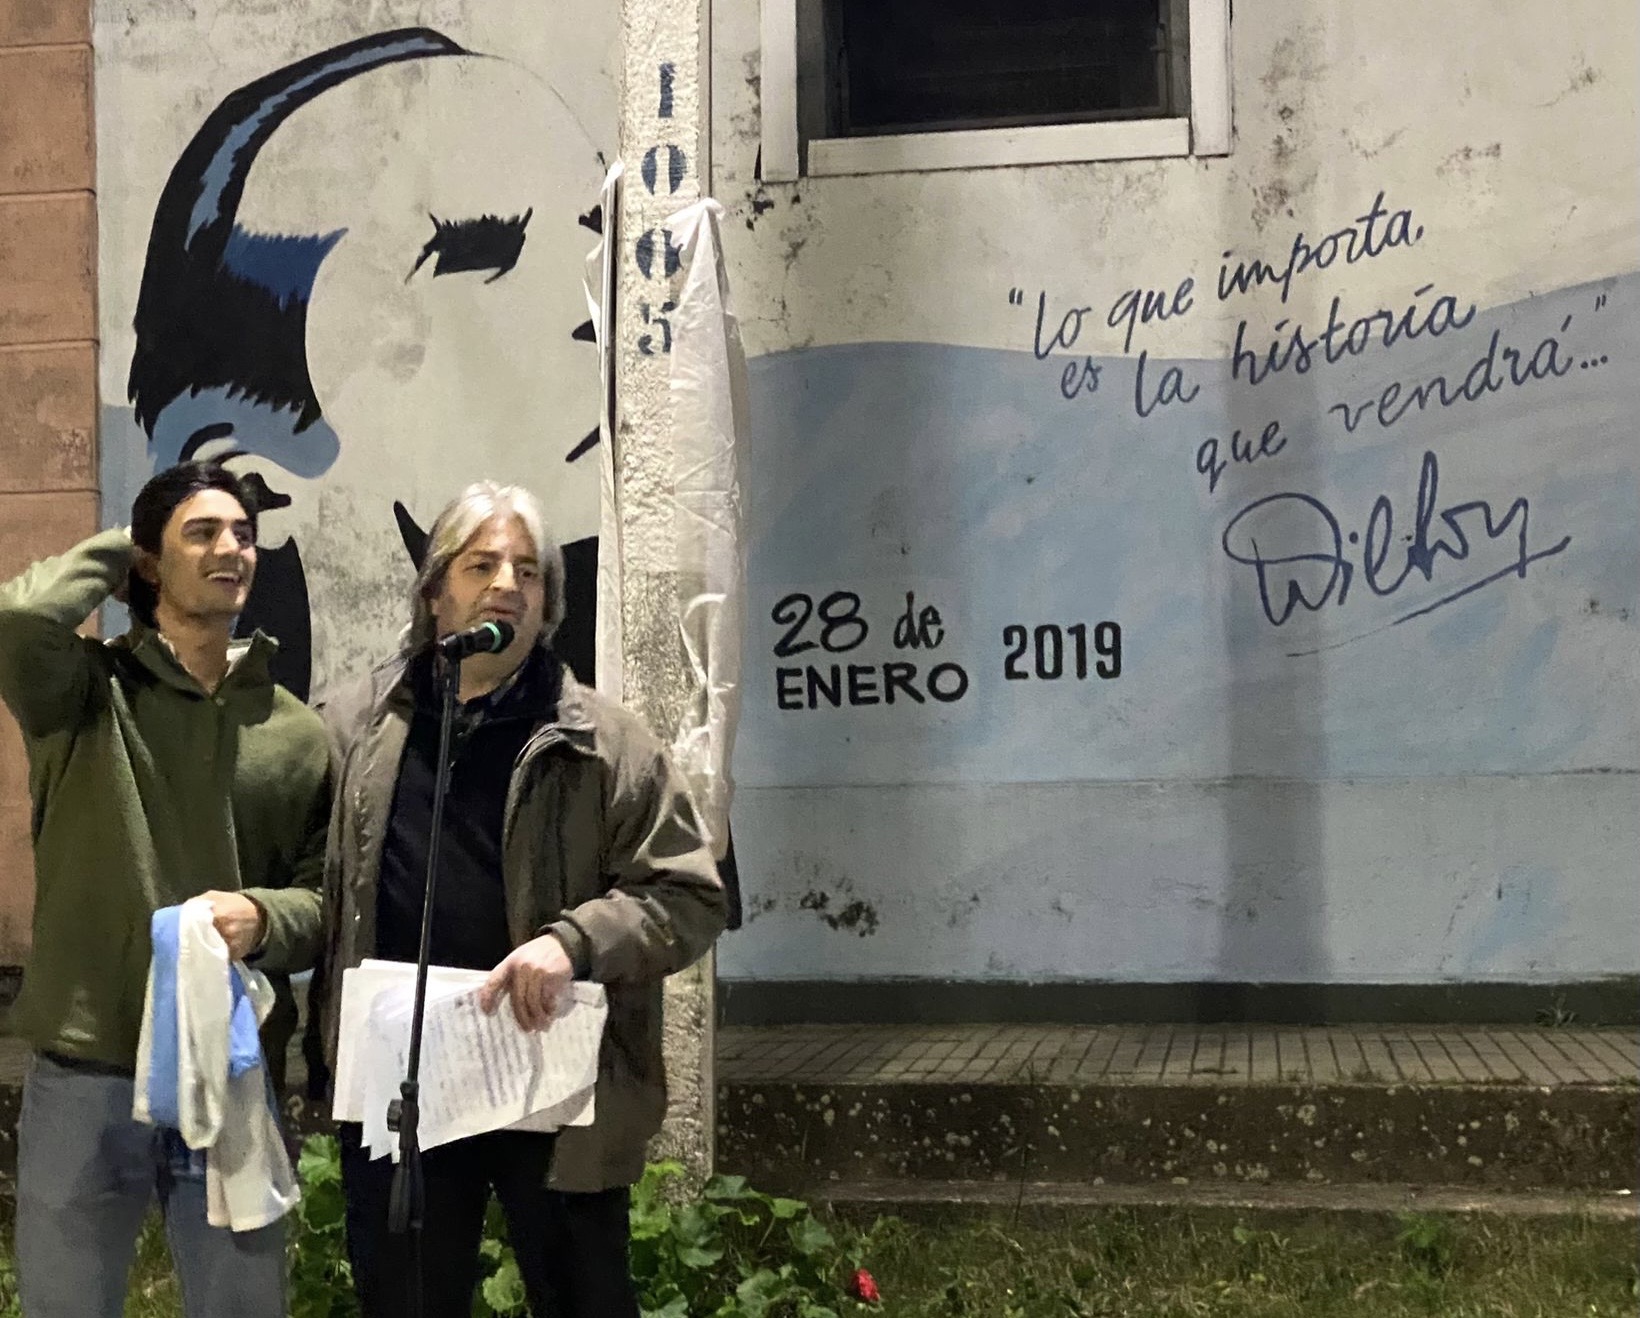 1005
"lo que importa
es la historia
que vendrá..."
Wilson
28 de
ENERO
2019